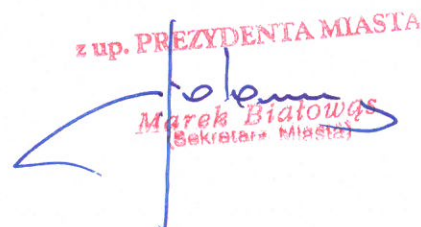 z up. PREZYDENTA MIASTA
Marek Białowąs
(Sekretarz Miasta)